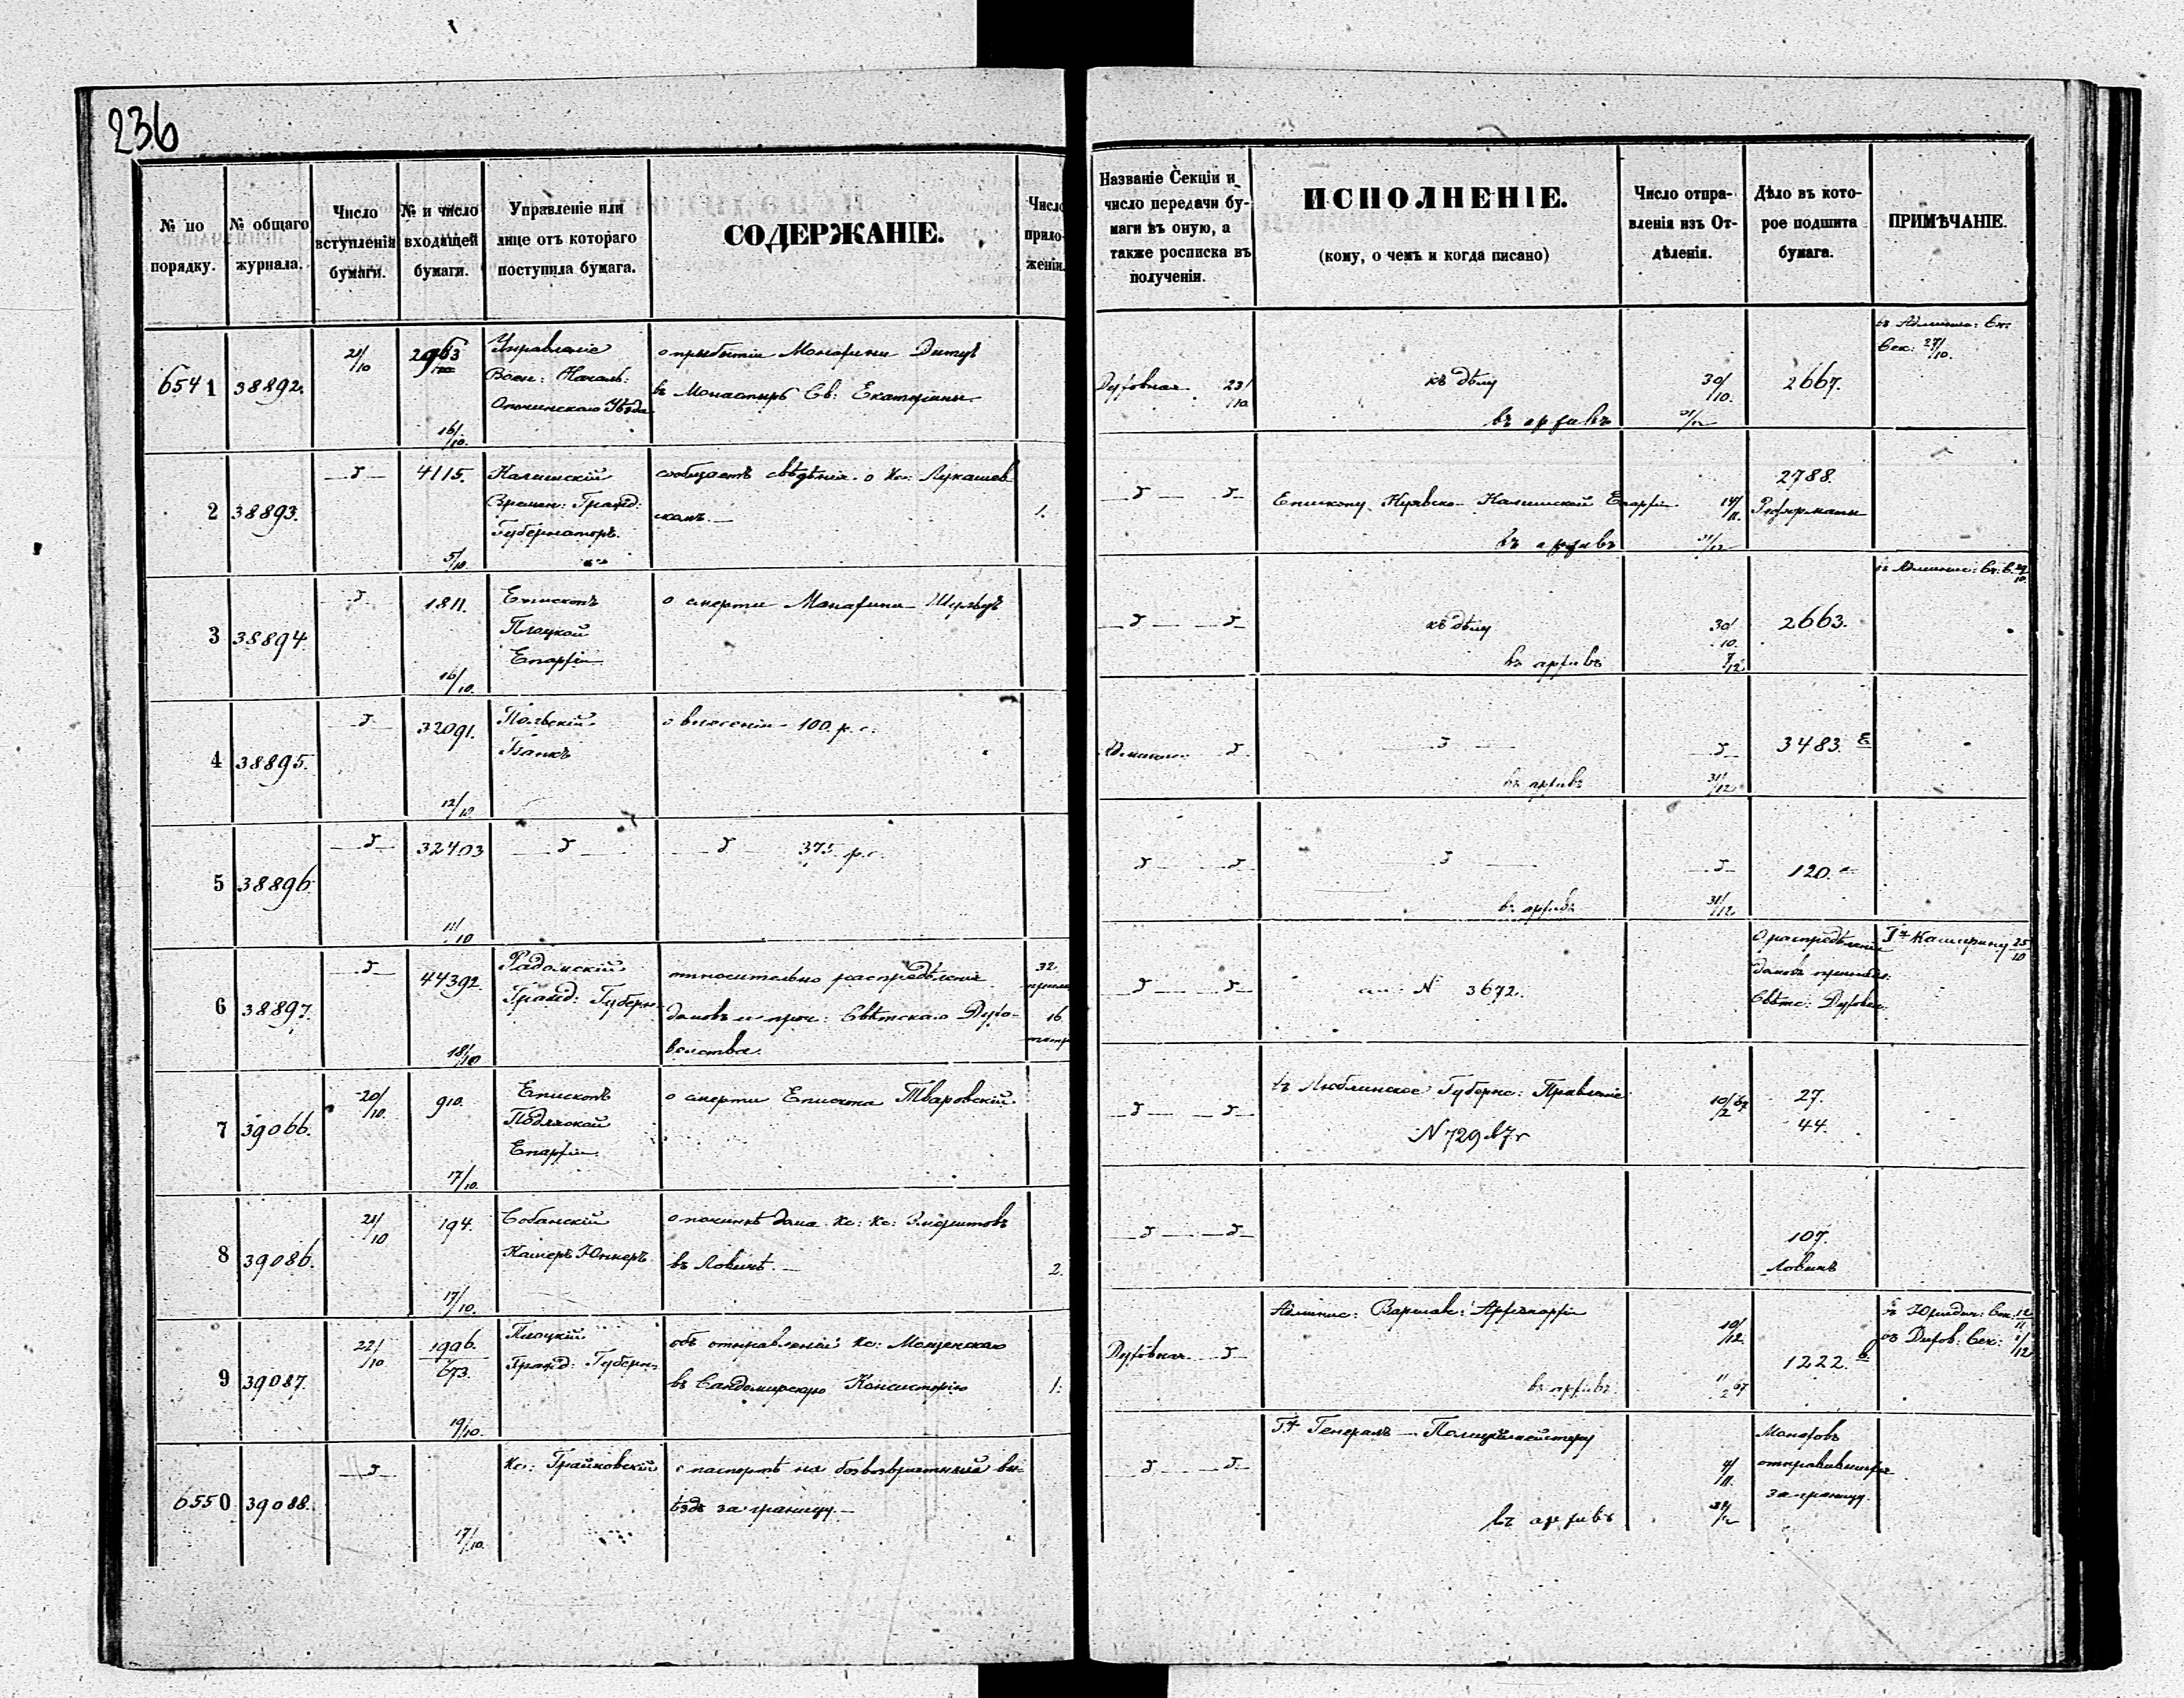 236
№ по порядку.
№ общаго журнала.
Число вступленія бумаги.
№ и число входящей бумаги.
Управленіе или лице отъ котораго поступила бумага.
СОДЕРЖАНІЕ.
Число приложеній.
Названіе Секціи и число передачи бумаги въ оную, а также росписка въ полученіи.
ИСПОЛНЕНІЕ.
(кому, о чемъ и когда писано)
Число отправленія изъ Отдѣленія.
Дѣло въ которое подшита бумага.
ПРИМѢЧАНІЕ.
6541 38892. 21/10 2963 16/10.
Управленіе
Воен: Началь:
Опочинскаго Уѣзда
о прибытіи Монахини
въ Монастырь Св: Екатерины
Духовная 23/10
къ дѣлу 30/10. 2667.
въ архивъ 31/12
27/10.
2 38893. 4115. 5/10.
Калишскій
Времен: Гражд:
Губернаторъ.
сообщаетъ свѣдѣнія о Кс: Лукашев
скомъ.
1.
Епископу Куявско-Калишской Епархіи 14/11.
2788.
Реформаты
въ архивъ 31/12
3 38894. 1811. 16/10.
Епископъ
Плоцкой
Епархіи
о смерти Монахини Шульцъ
къ дѣлу 30/10. 2663.
въ архивъ 7/12
4 38895. 32091. 12/10
Польскій
Банкъ
о внесеніи 100 р. с.
3483.
въ архивъ 31/12
5 38896. 32403 11/10
375 р. с.
120.
въ архивъ 31/12
6 38897. 44392. 18/10
Радомскій
Гражд: Губерн
относительно распредѣленія
домовъ и проч: Свѣтскаго Духо-
венства.
32
16
N 3672.
О распредѣленіи
домовъ
Свѣтс: Духовен:
Гну Каширину 25/10
7 39066. 20/10. 910. 17/10.
Епископъ
Подляской
Епархіи
о смерти Епископа Тваровскій
въ Люблинское Губернс: Правленіе
N 729 67 г
10/2 67
27.
44.
8 39086. 21/10 194. 17/10.
Собанскій
Камеръ Юнкеръ
о починкѣ дома Кс: Кс: Эмеритовъ
въ Ловичѣ.
2.
107.
Ловичъ
9 39087. 22/10 1996. 673. 19/10.
Плоцкій
Гражд: Губерн
объ отправленіи Кс:
въ Сандомирскую Консисторію
1.
Духовная
Админис: Варшавс: Архіепархіи
10/12.
1222.
въ архивъ 11/2 67
въ Юридич: Сек: 12/11
въ Духов. Сек: 1/12
6550 39088. 17/10.
Кс: Грайковскій
о паспортѣ на безвозвратный вы-
ѣздъ за границу.
Гну Генералъ-Полицеймейстеру
4/11.
Монаховъ
отправившихся
за границу.
въ архивъ 31/12